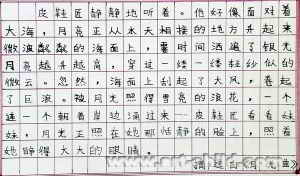 皮鞋匠静静地听着。他好像面对着
大海，月亮正从水天相接的地方升起来
微波粼粼的海面上，霎时间洒遍了银光
月亮越升越高，穿过一缕一缕轻纱似的
微云。忽然，海面上刮起了大风，卷起
了巨浪。被月光照得雪亮的浪花，一个
连一个朝着岸边涌过来……皮鞋匠看看妹
妹，月光正照在她那恬静的脸上，照着
她睁得大大的眼睛。
摘选自《月光曲》